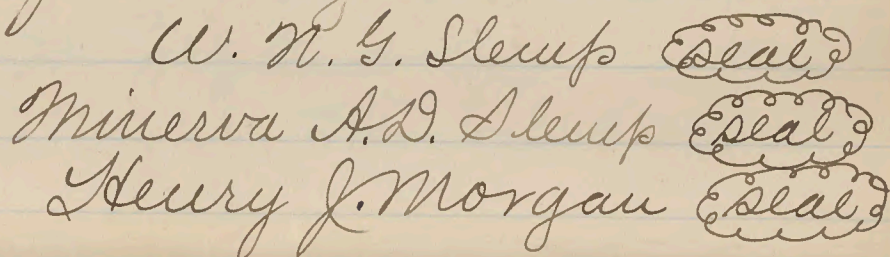 W. N. G. Slemp seal
Minerva A.D. Slemp seal
Henry J. Morgan seal